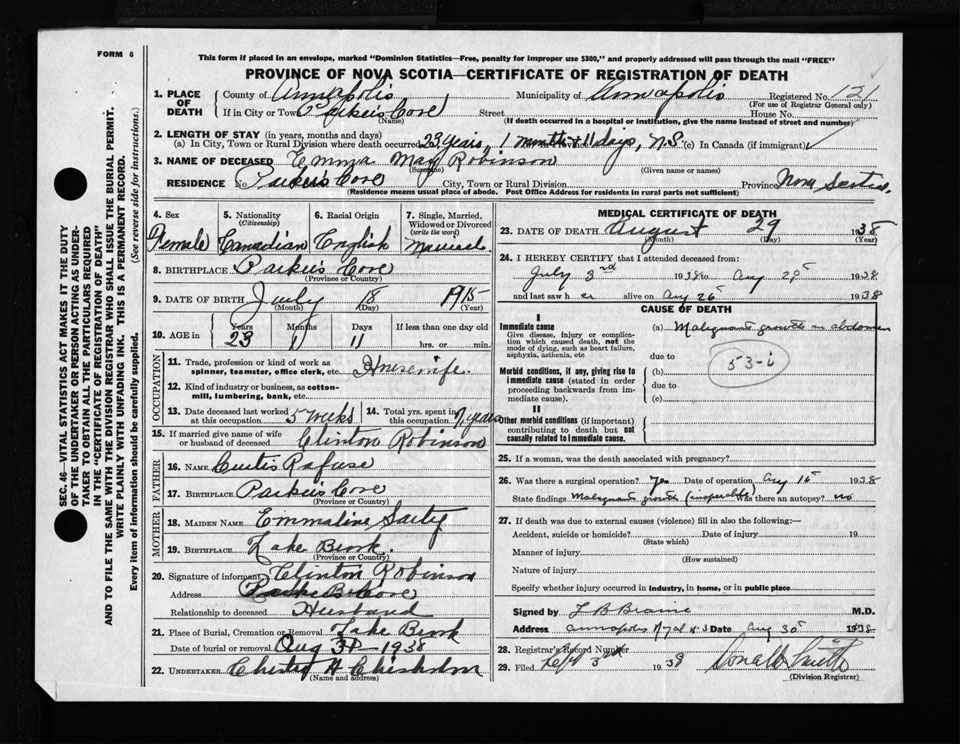 FORM 6
This form if placed in an envelope, marked "Dominion Statistics—Free, penalty for improper use $300," and properly addressed will pass through the mail "FREE"
PROVINCE OF NOVA SCOTIA—CERTIFICATE OF REGISTRATION OF DEATH
SEC. 46—VITAL STATISTICS ACT MAKES IT THE DUTY
OF THE UNDERTAKER OR PERSON ACTING AS UNDER-
TAKER TO OBTAIN ALL THE PARTICULARS REQUIRED
IN THE "CERTIFICATE OF REGISTRATION OF DEATH"
AND TO FILE THE SAME WITH THE DIVISION REGISTRAR WHO SHALL ISSUE THE BURIAL PERMIT.
WRITE PLAINLY WITH UNFADING INK. THIS IS A PERMANENT RECORD.
Every item of information should be carefully supplied. (See reverse side for instructions.)
1. PLACE OF DEATH County of Annapolis Municipality of Annapolis Registered No. 121
(For use of Registrar General only)
If in City or Town Parkers Cove Street House No.
(Name) (If death occurred in a hospital or institution, give the name instead of street and number)
2. LENGTH OF STAY (in years, months and days)
(a) In City, Town or Rural Division where death occurred 23 years, 1 month + 11 days, N.S. (c) In Canada (if immigrant)
3. NAME OF DECEASED Emma May Robinson
(Surname) (Given name or names)
RESIDENCE No. Parker's Cove City, Town or Rural Division Province Nova Scotia
(Residence means usual place of abode. Post Office Address for residents in rural parts not sufficient)
4. Sex
Female
5. Nationality
(Citizenship)
Canadian
6. Racial Origin
English
7. Single, Married,
Widowed or Divorced
(write the word)
Married
8. BIRTHPLACE Parker's Cove
(Province or Country)
9. DATE OF BIRTH July 18 1915
(Month) (Day) (Year)
10. AGE in Years Months Days If less than one day old
23 1 11 hrs. or min.
OCCUPATION
11. Trade, profession or kind of work as
spinner, teamster, office clerk, etc. Housewife.
12. Kind of industry or business, as cotton-
mill, lumbering, bank, etc.
13. Date deceased last worked
at this occupation 5 weeks
14. Total yrs. spent in
this occupation 7 years
15. If married give name of wife
or husband of deceased Clinton Robinson
FATHER
16. NAME Curtis Rafuse
17. BIRTHPLACE Parker's Cove
(Province or Country)
MOTHER
18. MAIDEN NAME Emmaline
19. BIRTHPLACE Lake Brook.
(Province or Country)
20. Signature of informant Clinton Robinson
Address Parkers Cove
Relationship to deceased Husband
21. Place of Burial, Cremation or Removal Lake Brook
Date of burial or removal Aug 31 - 1938
22. UNDERTAKER Chisholm
(Name and address)
MEDICAL CERTIFICATE OF DEATH
23. DATE OF DEATH August 29 1938
(Month) (Day) (Year)
24. I HEREBY CERTIFY that I attended deceased from:
July 3rd 1938 to Aug 28 1938
and last saw her alive on Aug 26 1938
CAUSE OF DEATH
I
Immediate cause
Give disease, injury or complica-
tion which caused death, not the
mode of dying, such as heart failure,
asphyxia, asthenia, etc
(a) Malignant growth in abdomen
due to
53-i
Morbid conditions, if any, giving rise to
immediate cause (stated in order
proceeding backwards from im-
mediate cause).
(b)
due to
(c)
II
Other morbid conditions (if important)
contributing to death but not
causally related to immediate cause.
25. If a woman, was the death associated with pregnancy?
26. Was there a surgical operation? Yes Date of operation Aug 16 1938
State findings Malignant growth (inoperable) Was there an autopsy? no
27. If death was due to external causes (violence) fill in also the following:—
Accident, suicide or homicide? Date of injury 19
(State which)
Manner of injury
(How sustained)
Nature of injury
Specify whether injury occurred in industry, in home, or in public place
Signed by L B Braine M.D.
Address Annapolis Royal N.S. Date Aug 30 1938
28. Registrar's Record Number
29. Filed Sept 3rd 1938 Donald Smith
(Division Registrar)